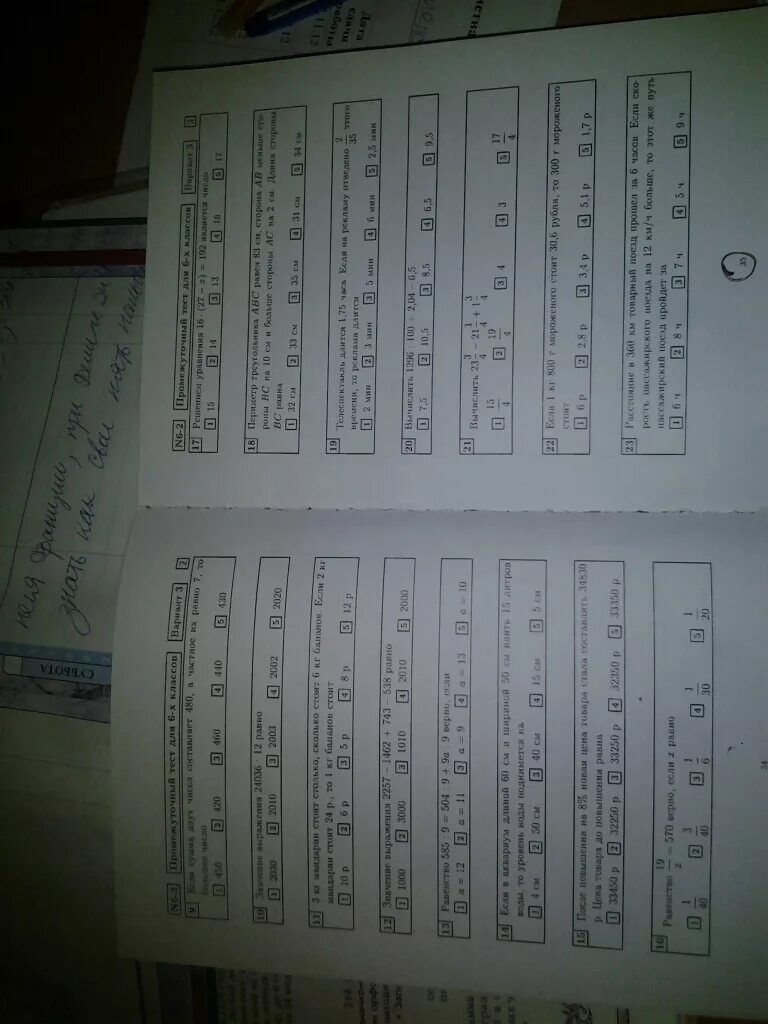 N6-2 Промежуточный тест для 6-х классов Вариант 3 2
9 Если сумма двух чисел составляет 480, а частное их равно 7, то
большее число
1 450 2 420 3 460 4 440 5 430
10 Значение выражения 24036 : 12 равно
1 2030 2 2010 3 2003 4 2002 5 2020
11 3 кг мандарин стоят столько, сколько стоят 6 кг бананов. Если 2 кг
мандарин стоят 24 р., то 1 кг бананов стоит
1 10 р 2 6 р 3 5 р 4 8 р 5 12 р
12 Значение выражения 2257 − 1462 + 743 538 равно
1 1000 2 3000 3 1010 4 2010 5 2000
13 Равенство 585 : 9 = 504 : 9 + 9a : 9 верно, если
1 a = 12 2 a = 11 3 a = 9 4 a = 13 5 a = 10
14 Если в аквариум длиной 60 см и шириной 50 см влить 15 литров
воды, то уровень воды поднимется на
1 4 см 2 50 см 3 40 см 4 15 см 5 5 см
15 После повышения на 8% новая цена товара стала составлять 34830
р. Цена товара до повышения равна
1 33450 р 2 32250 р 3 33250 р 4 32350 р 5 33350 р
16 Равенство 19/x = 570 верно, если x равно
1 1/40 2 3/40 3 1/6 4 1/30 5 1/20
N6-2 Промежуточный тест для 6-х классов Вариант 3 3
17 Решением уравнения 16 · (27 − x) = 192 является число
1 15 2 14 3 13 4 16 5 17
18 Периметр треугольника ABC равен 83 см, сторона AB меньше сто-
роны BC на 10 см и больше стороны AC на 2 см. Длина стороны
BC равна
1 32 см 2 33 см 3 35 см 4 31 см 5 34 см
19 Телеспектакль длится 1,75 часа. Если на рекламу отведено 2/35 этого
времени, то реклама длится
1 2 мин 2 3 мин 3 5 мин 4 6 мин 5 2,5 мин
20 Вычислить 1296 : 100 + 2,04 − 6,5
1 7,5 2 10,5 3 8,5 4 6,5 5 9,5
21 Вычислить 23 3/4 − 21 1/4 + 1 3/4
1 15/4 2 19/4 3 4 4 3 5 17/4
22 Если 1 кг 800 г мороженого стоит 30,6 рубля, то 300 г мороженого
стоит
1 6 р 2 2,8 р 3 3,4 р 4 5,1 р 5 1,7 р
23 Расстояние в 360 км товарный поезд прошел за 6 часов. Если ско-
рость пассажирского поезда на 12 км/ч больше, то этот же путь
пассажирский поезд пройдет за
1 6 ч 2 8 ч 3 7 ч 4 5 ч 5 9 ч
35
СУББОТА
знать как свои
Дата
сдачи
работы